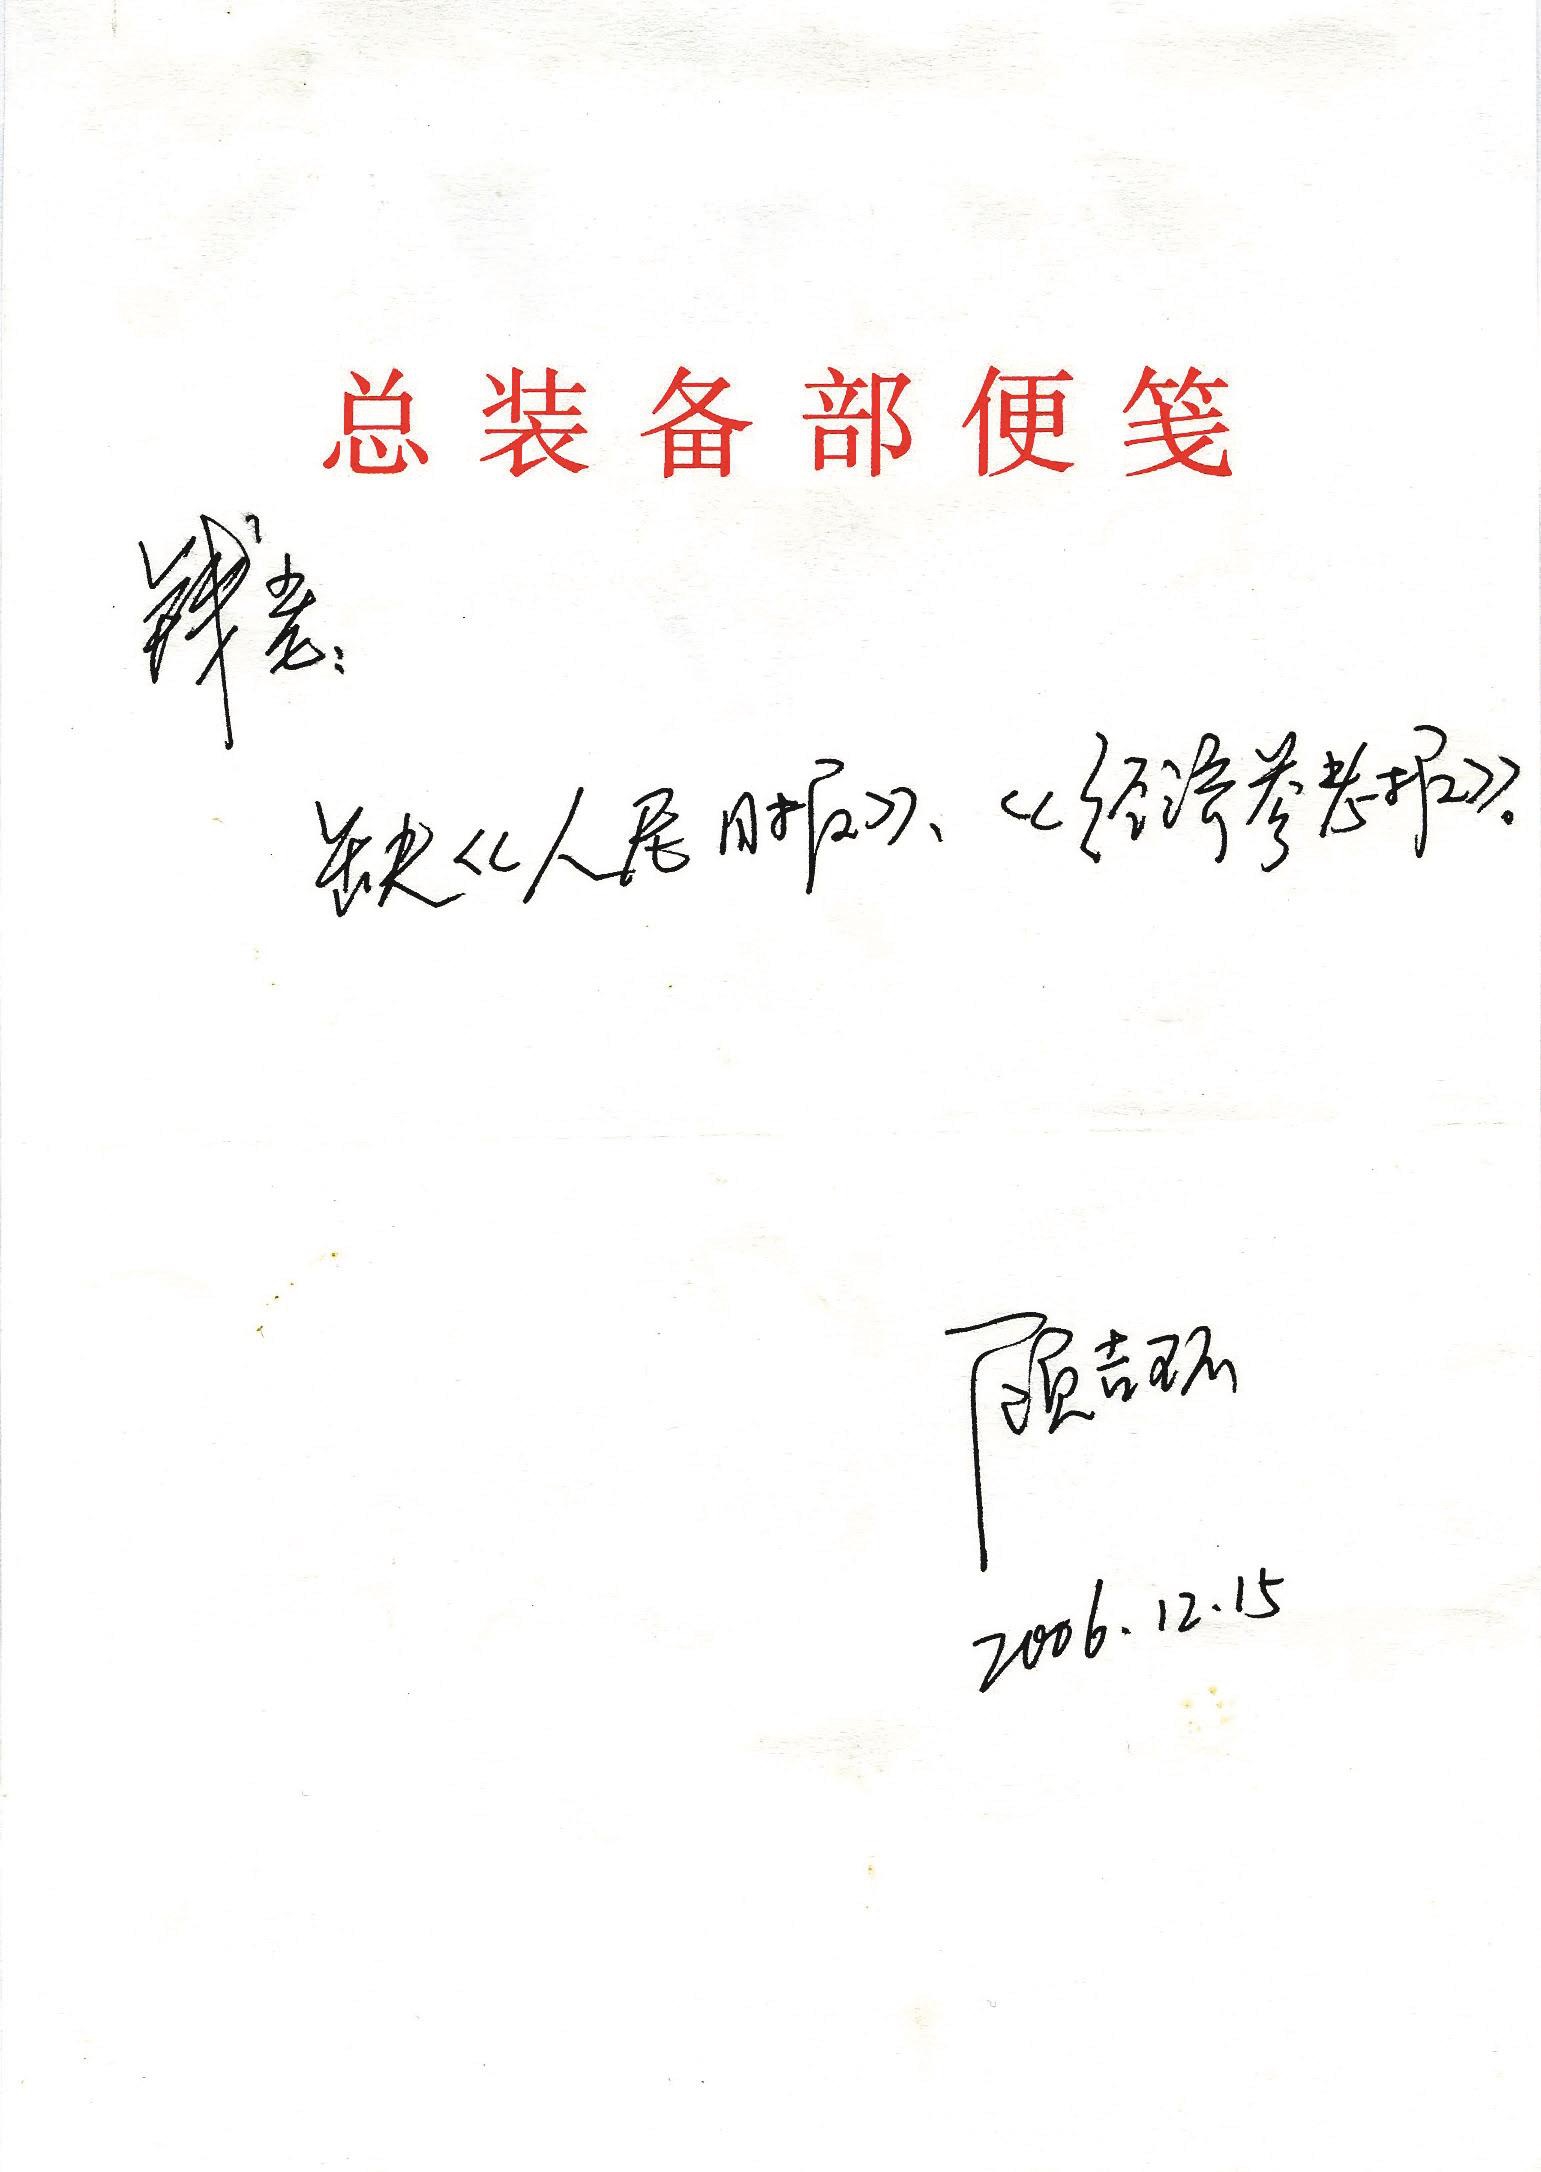 总装备部便笺
钱老：
缺《人民日报》、《经济参考报》。
顾吉环
2006.12.15